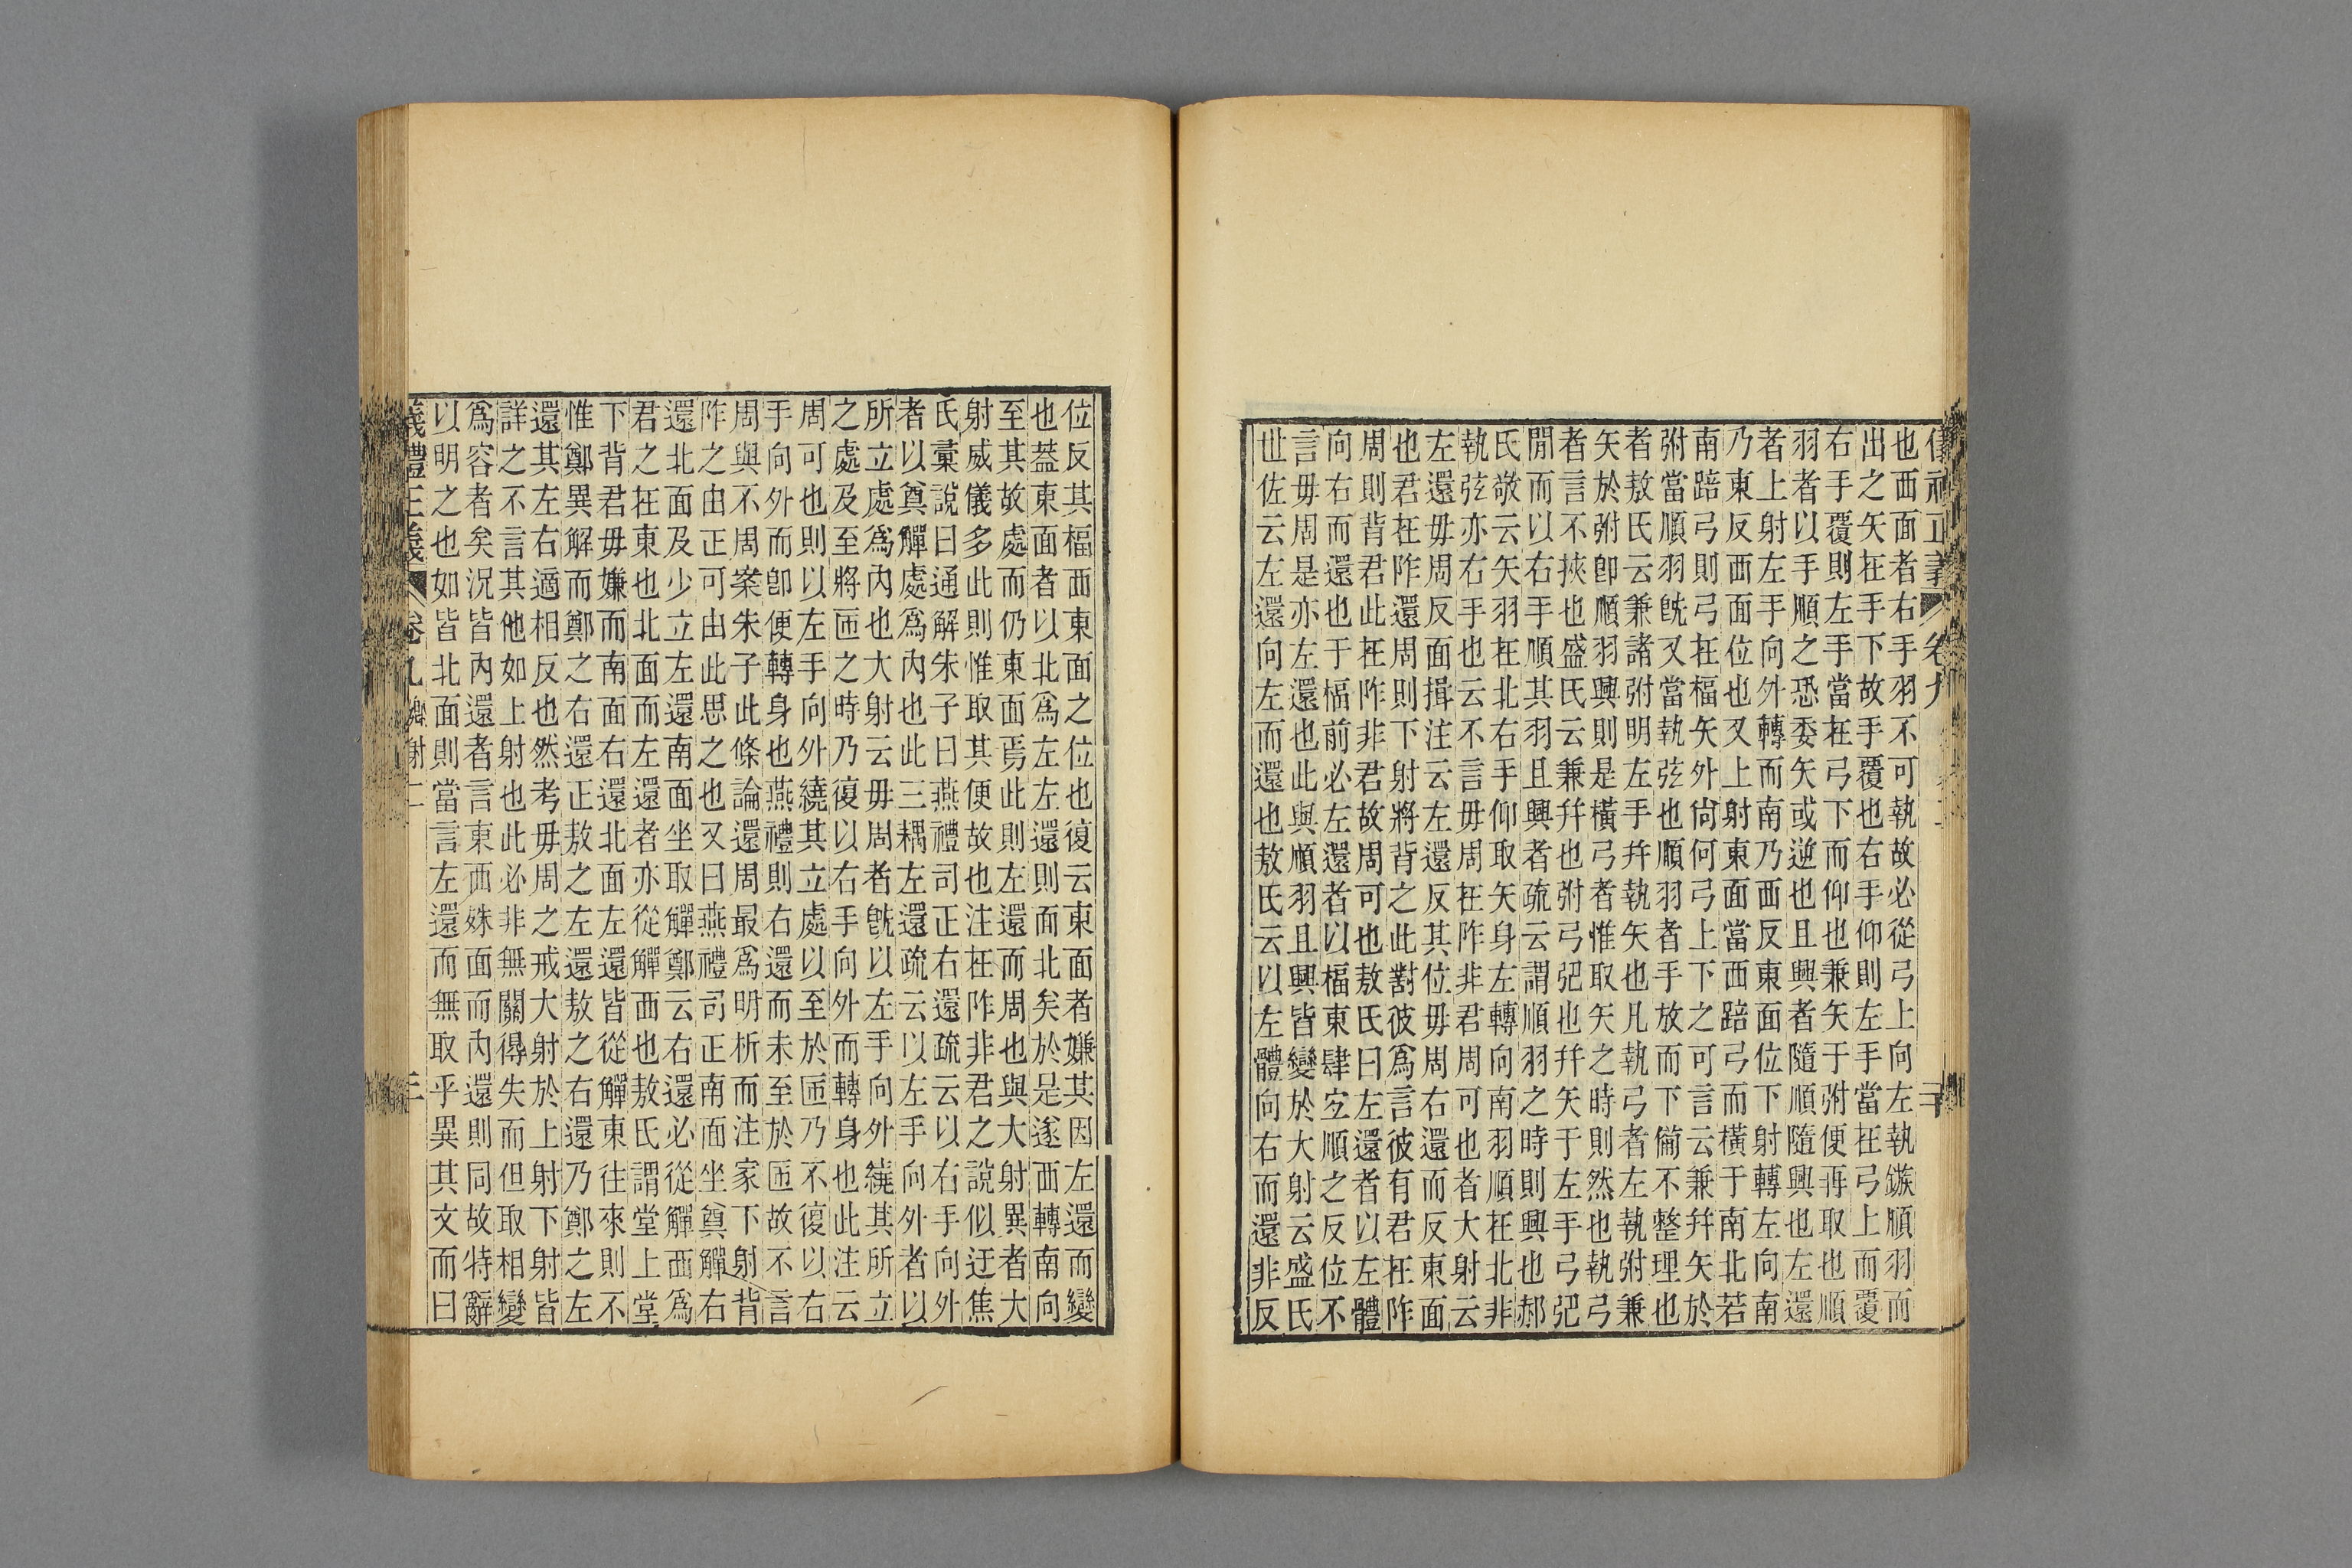 儀禮正義 卷九
也西面者右手羽不可執故必從弓上向左執鏃順羽而
出之矢在手下故手覆也右手仰則左手當在弓上而覆
右手覆則左手當在弓下而仰也兼矢于弣便再取也順
羽者以手順之恐委矢或逆也且興者隨順隨興也左還
者上射左手向外轉而南乃西反東面位下射轉左向南
乃東反西面位也又上射東面當西踣弓而橫于南北若
南踣弓則弓在楅矢外尙何弓上下之可言云兼并矢於
弣當順羽旣又當執弦也順羽者手放而下備不整理也
者敖氏云兼諸弣明左手并執矢也凡執弓者左執弣兼
矢於弣卽順羽興則是橫弓者惟取矢之時則然也執弓
者言不挾也盛氏云兼并也弣弓弝也并矢于左手弓弝
閒而以右手順其羽且興者疏云謂順羽之時則興也郝
氏敬云矢羽在北右手仰取矢身左轉向南羽順在北非
執弦亦右手也云不言毋周在阼非君周可也者大射云
左還毋周反面揖注云左還反其位毋周右還而反東面
也君在阼還周則下射將背之此對彼爲言彼有君在阼
周則背君此在阼非君故周可也敖氏曰左還者以左體
向右而還也于楅前必左還者以楅東肆宜順之反位不
言毋周是亦左還也此與順羽且興皆變於大射云盛氏
世佐云左還向左而還也敖氏云以左體向右而還非反
位反其楅西東面之位也復云東面者嫌其因左還而變
也蓋東面者以北爲左左還則面北矣於是遂西轉南向
至其故處而仍東面焉此則左還而周也與大射異者大
射威儀多此則惟取其便故也注在阼非君之說似迂焦
氏橐說曰通解朱子曰燕禮司正右還疏云以右手向外
者以奠觶處爲內也此三耦左還疏云以左手向外者以
所立處爲內也大射云毋周者旣以左手向外繞其所立
之處及至將匝之時乃復以右手向外而轉身也此注云
周可也則以左手向外繞其立處以至於匝乃不復以右
手向外而卽便轉身也燕禮則右還而未至於匝故不言
周與不周案朱子此條論還周最爲明析而注家下射背
阼之由正可由此思之也又曰燕禮司正南面坐奠觶右
還北面及少立左還南面坐取觶鄭云右還必從觶西爲
君之在東也北面而左還者亦從觶西也敖氏謂堂上堂
下背君毋嫌而南面右還北面左還皆從觶東往來則不
惟鄭異解而鄭之右還正敖之左還敖之右還乃鄭之左
還其左右適相反也然考毋周之戒大射於上射下射皆
詳之不言其他如上射也此必非無關得失而但取相變
爲容者矣況皆內還者言東西姝面而內還則同故特辭
以明之也如皆北面則當言左還而無取乎異其文而曰
儀禮正義 卷九 鄉射二 三